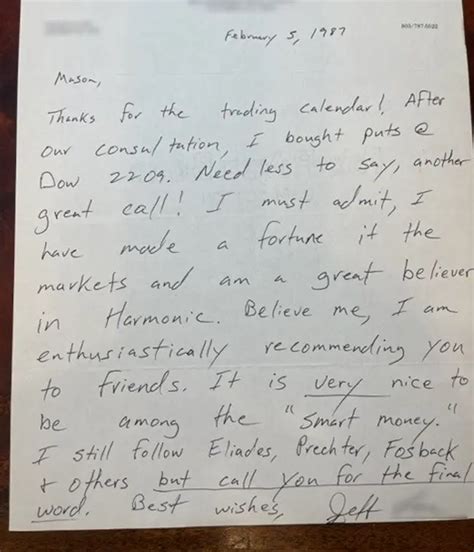 805/787-5522
February 5, 1987
Mason,
Thanks for the trading calendar! After
our consultation, I bought puts @
Dow 2209. Need less to say, another
great call! I must admit, I
have made a fortune it the
markets and am a great believer
in Harmonic. Believe me, I am
enthusiastically recommending you
to friends. It is very nice to
be among the "smart money."
I still follow Eliades, Prechter, Fosback
+ others but call you for the final
word. Best wishes, Jeff